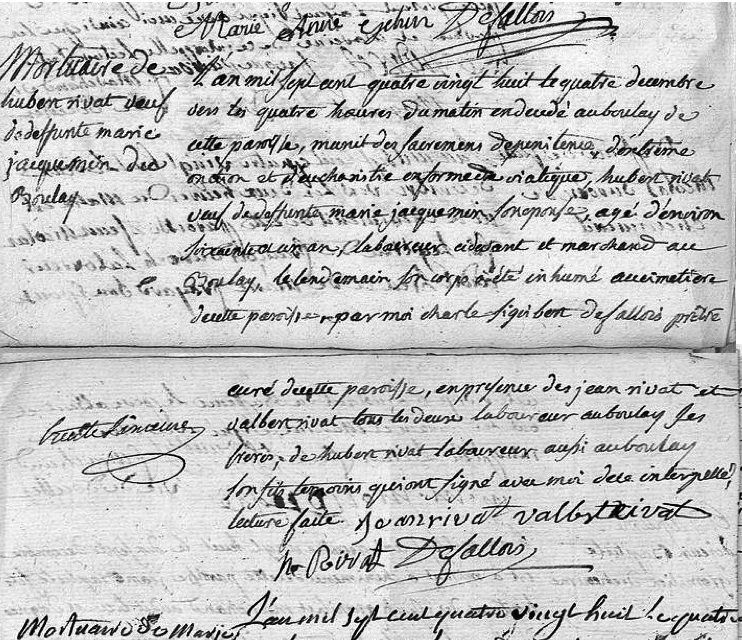 Marie Anne Desallois
Mortuaire de
hubert rivat veuf
de deffunte marie
jacquemin du
Boulay
L'an mil sept cent quatre vingt huit le quatre decembre
vers les quatre heures du matin en decedé au boulay de
cette paroisse, munit des sacremens de penitence, d'extrême
onction et d'eucharistie en forme de viatique, hubert rivat
veuf de deffunte marie jacquemin son epouse, agé d'environ
soixante et un an, laboureur et marchand au
Boulay, le lendemain son corp a été inhumé au cimetiere
de cette paroisse, par moi charle sigisbert desallois prêtre
curé de cette paroisse, en présence des jean rivat et
valbert rivat tous les deux laboureur au boulay ses
freres, de hubert rivat laboureur aussi au boulay
son fils temoins qui ont signé avec moi de ce interpellé,
lecture faite. Jean rivat valbert rivat
h Rivat Desallois
Mortuaire de Marie
L'an mil sept cent quatre vingt huit le quatre